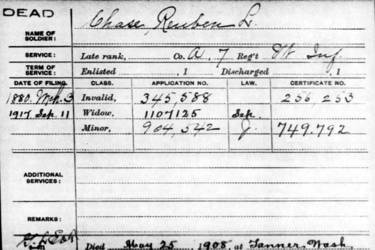 DEAD
NAME OF SOLDIER: Chase, Reuben L.
SERVICE: Late rank, Co. A, 7 Reg't Vt. Inf.
TERM OF SERVICE: Enlisted 1 Discharged 1
DATE OF FILING. CLASS. APPLICATION NO. LAW. CERTIFICATE NO.
1880 Mch 3 Invalid, 345,588 256,253
1917 Sep. 11 Widow, 1107125 Sep.
Minor, 904,542 J. 749.792
ADDITIONAL SERVICES:
REMARKS:
Died May 25 1908, at Tanner, Wash.